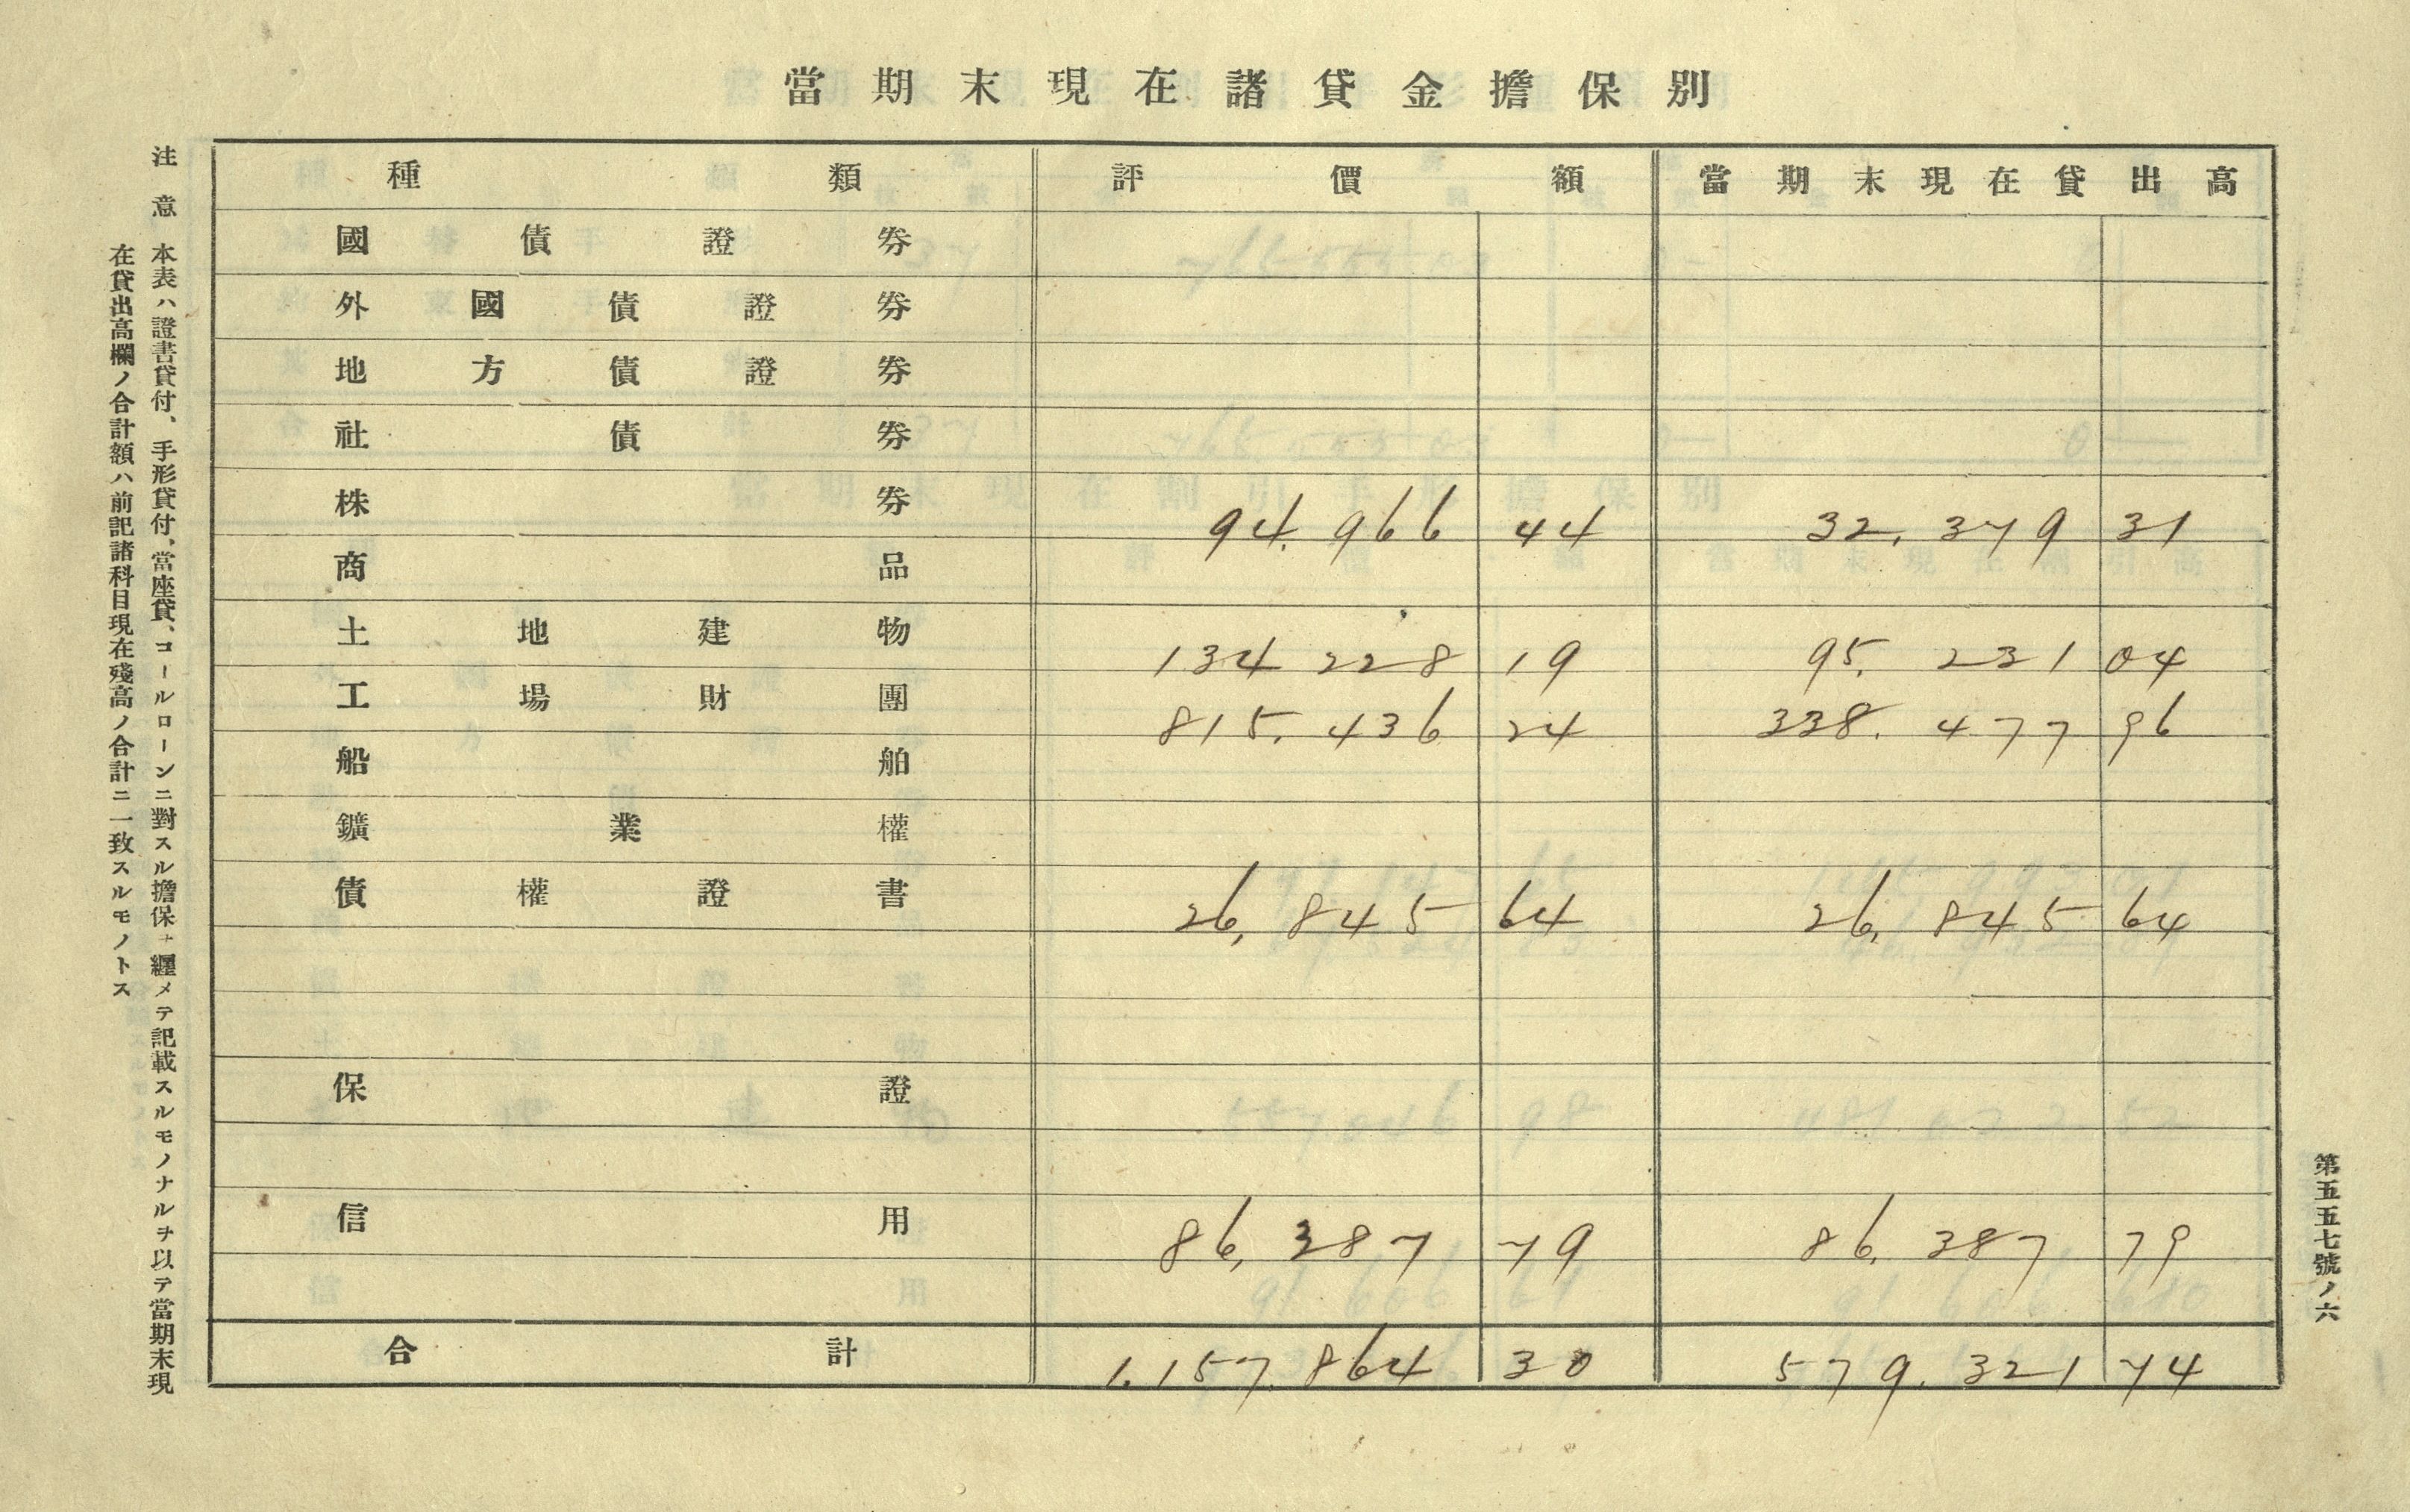 當期末現在諸貸金擔保別
種類 評價額 當期末現在貸出高
國債證券
外國債證券
地方債證券
社債券
株券 94.966 44 32.379 31
商品
土地建物 134 228 19 95.231 04
工場財團 815.436 24 338.477 96
船舶
鑛業權
債權證書 26,845 64 26,845 64
保證
信用 86,387 79 86,387 79
合計 1.157.864 30 579.321 74
第五五七號ノ六
注意 本表ハ證書貸付、手形貸付、當座貸、コールローンニ對スル擔保ヲ纒メテ記載スルモノナルヲ以テ當期末現
在貸出高欄ノ合計額ハ前記諸科目現在殘高ノ合計ニ一致スルモノトス